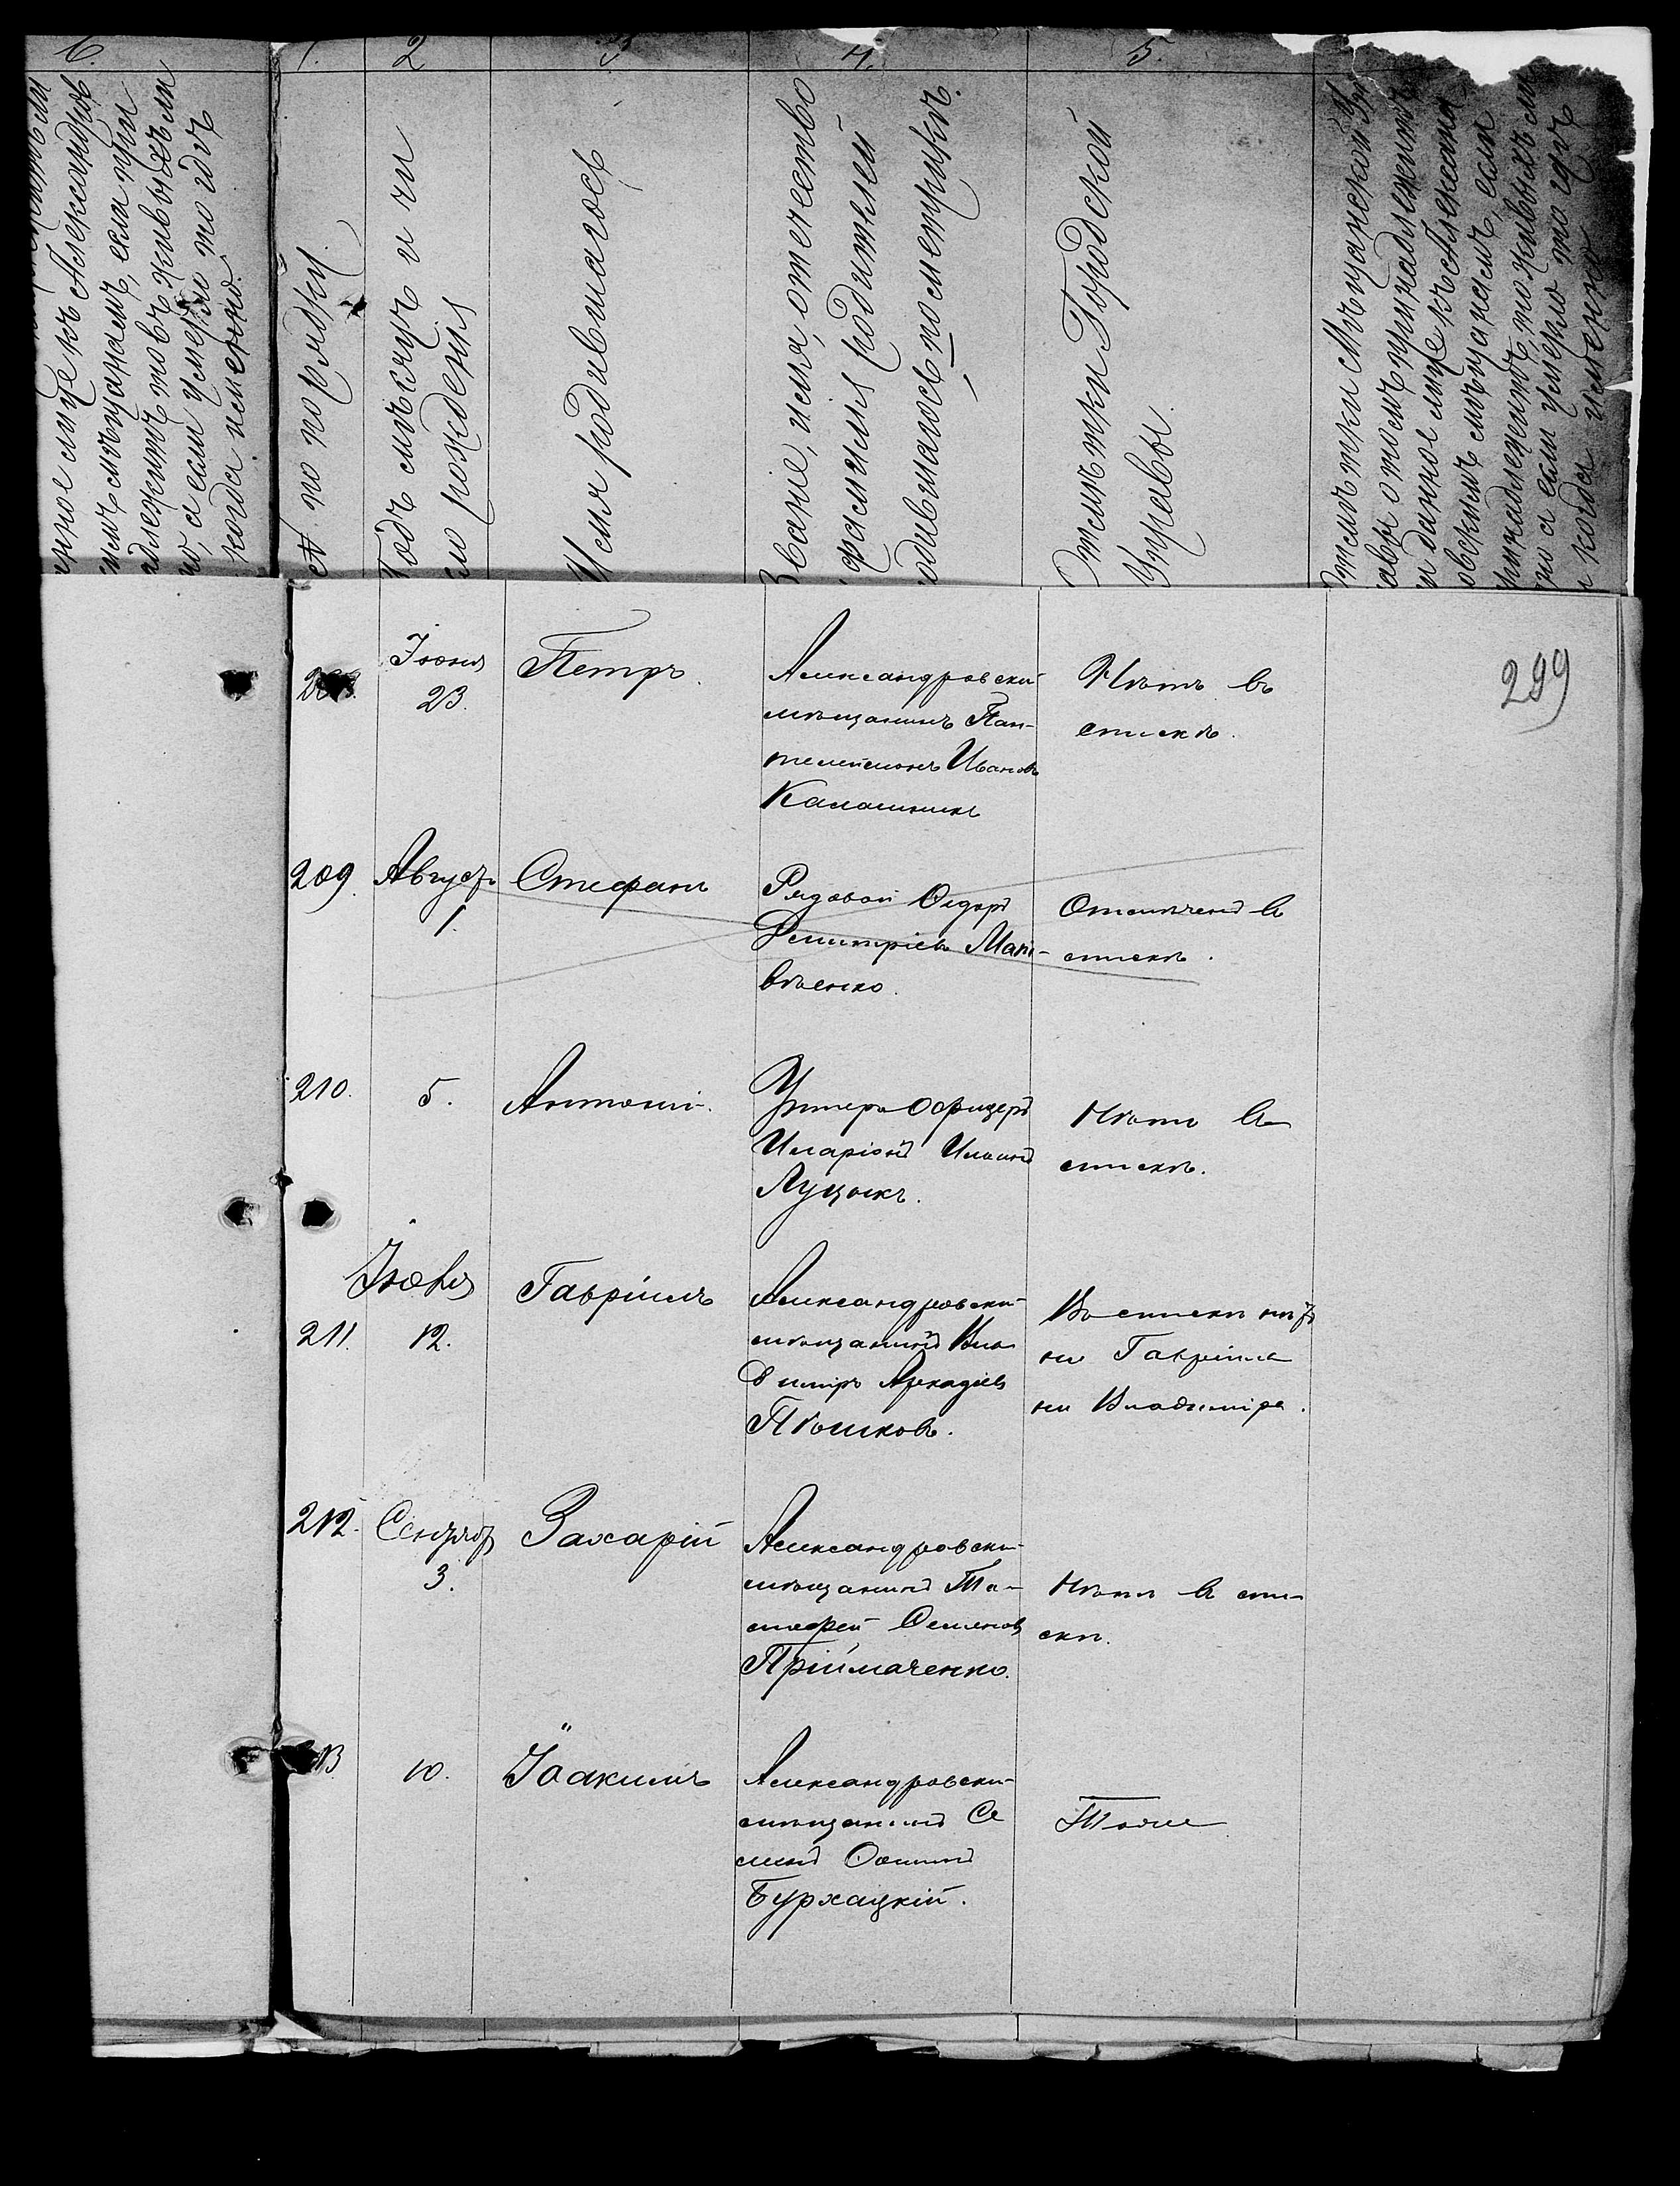 6.
1.
2
3
4.
5.
нное лице къ Александров
мѣщанамъ, если при
надлежитъ то въ живыхъ ли
а если умерли то гдѣ
когда именно.
№ по порядку
Годъ мѣсяцъ и чи
сло рожденія
Имя родившагося
Званіе, имя, отчество
фамилія родителей
родившагося по метрикѣ.
Отмѣтки Городской
Управы.
Отмѣтки Мѣщанской Уп
авы о томъ принадлежитъ
ли данное лице къ Александ
овскимъ мѣщанамъ, если
принадлежитъ, то живыхъ ли
но а если умерло то гдѣ
и когда именно
299
Іюня
23.
Петръ.
Александровскій
мѣщанинъ Пан-
телеймонъ Ивановъ
Калашникъ
Нѣтъ въ
спискѣ.
209.
Августъ
1.
Стефанъ
Рядовой Сидоръ
Димитріевъ Мат-
вѣенко.
Отмѣченъ въ
спискѣ.
210.
5.
Антоній.
Унтеръ Офицеръ
Иларіонъ Ильинъ
Луцыкъ.
Нѣтъ въ
спискѣ.
211.
Іюля
12.
Гавріилъ
Александровскій
мѣщанинъ Вла
диміръ Аркадіевъ
Пѣшковъ.
Въ спискѣ нѣтъ
ни Гавріила
ни Владиміра.
212.
Сентябр
3.
Захарій
Александровскій
мѣщанинъ Ти-
мофей Семеновъ
Пріймаченко.
Нѣтъ въ спи-
скѣ.
13
10.
Іоакимъ
Александровскій
мѣщанинъ Се
менъ Осипов
Бурхацкій.
Тоже